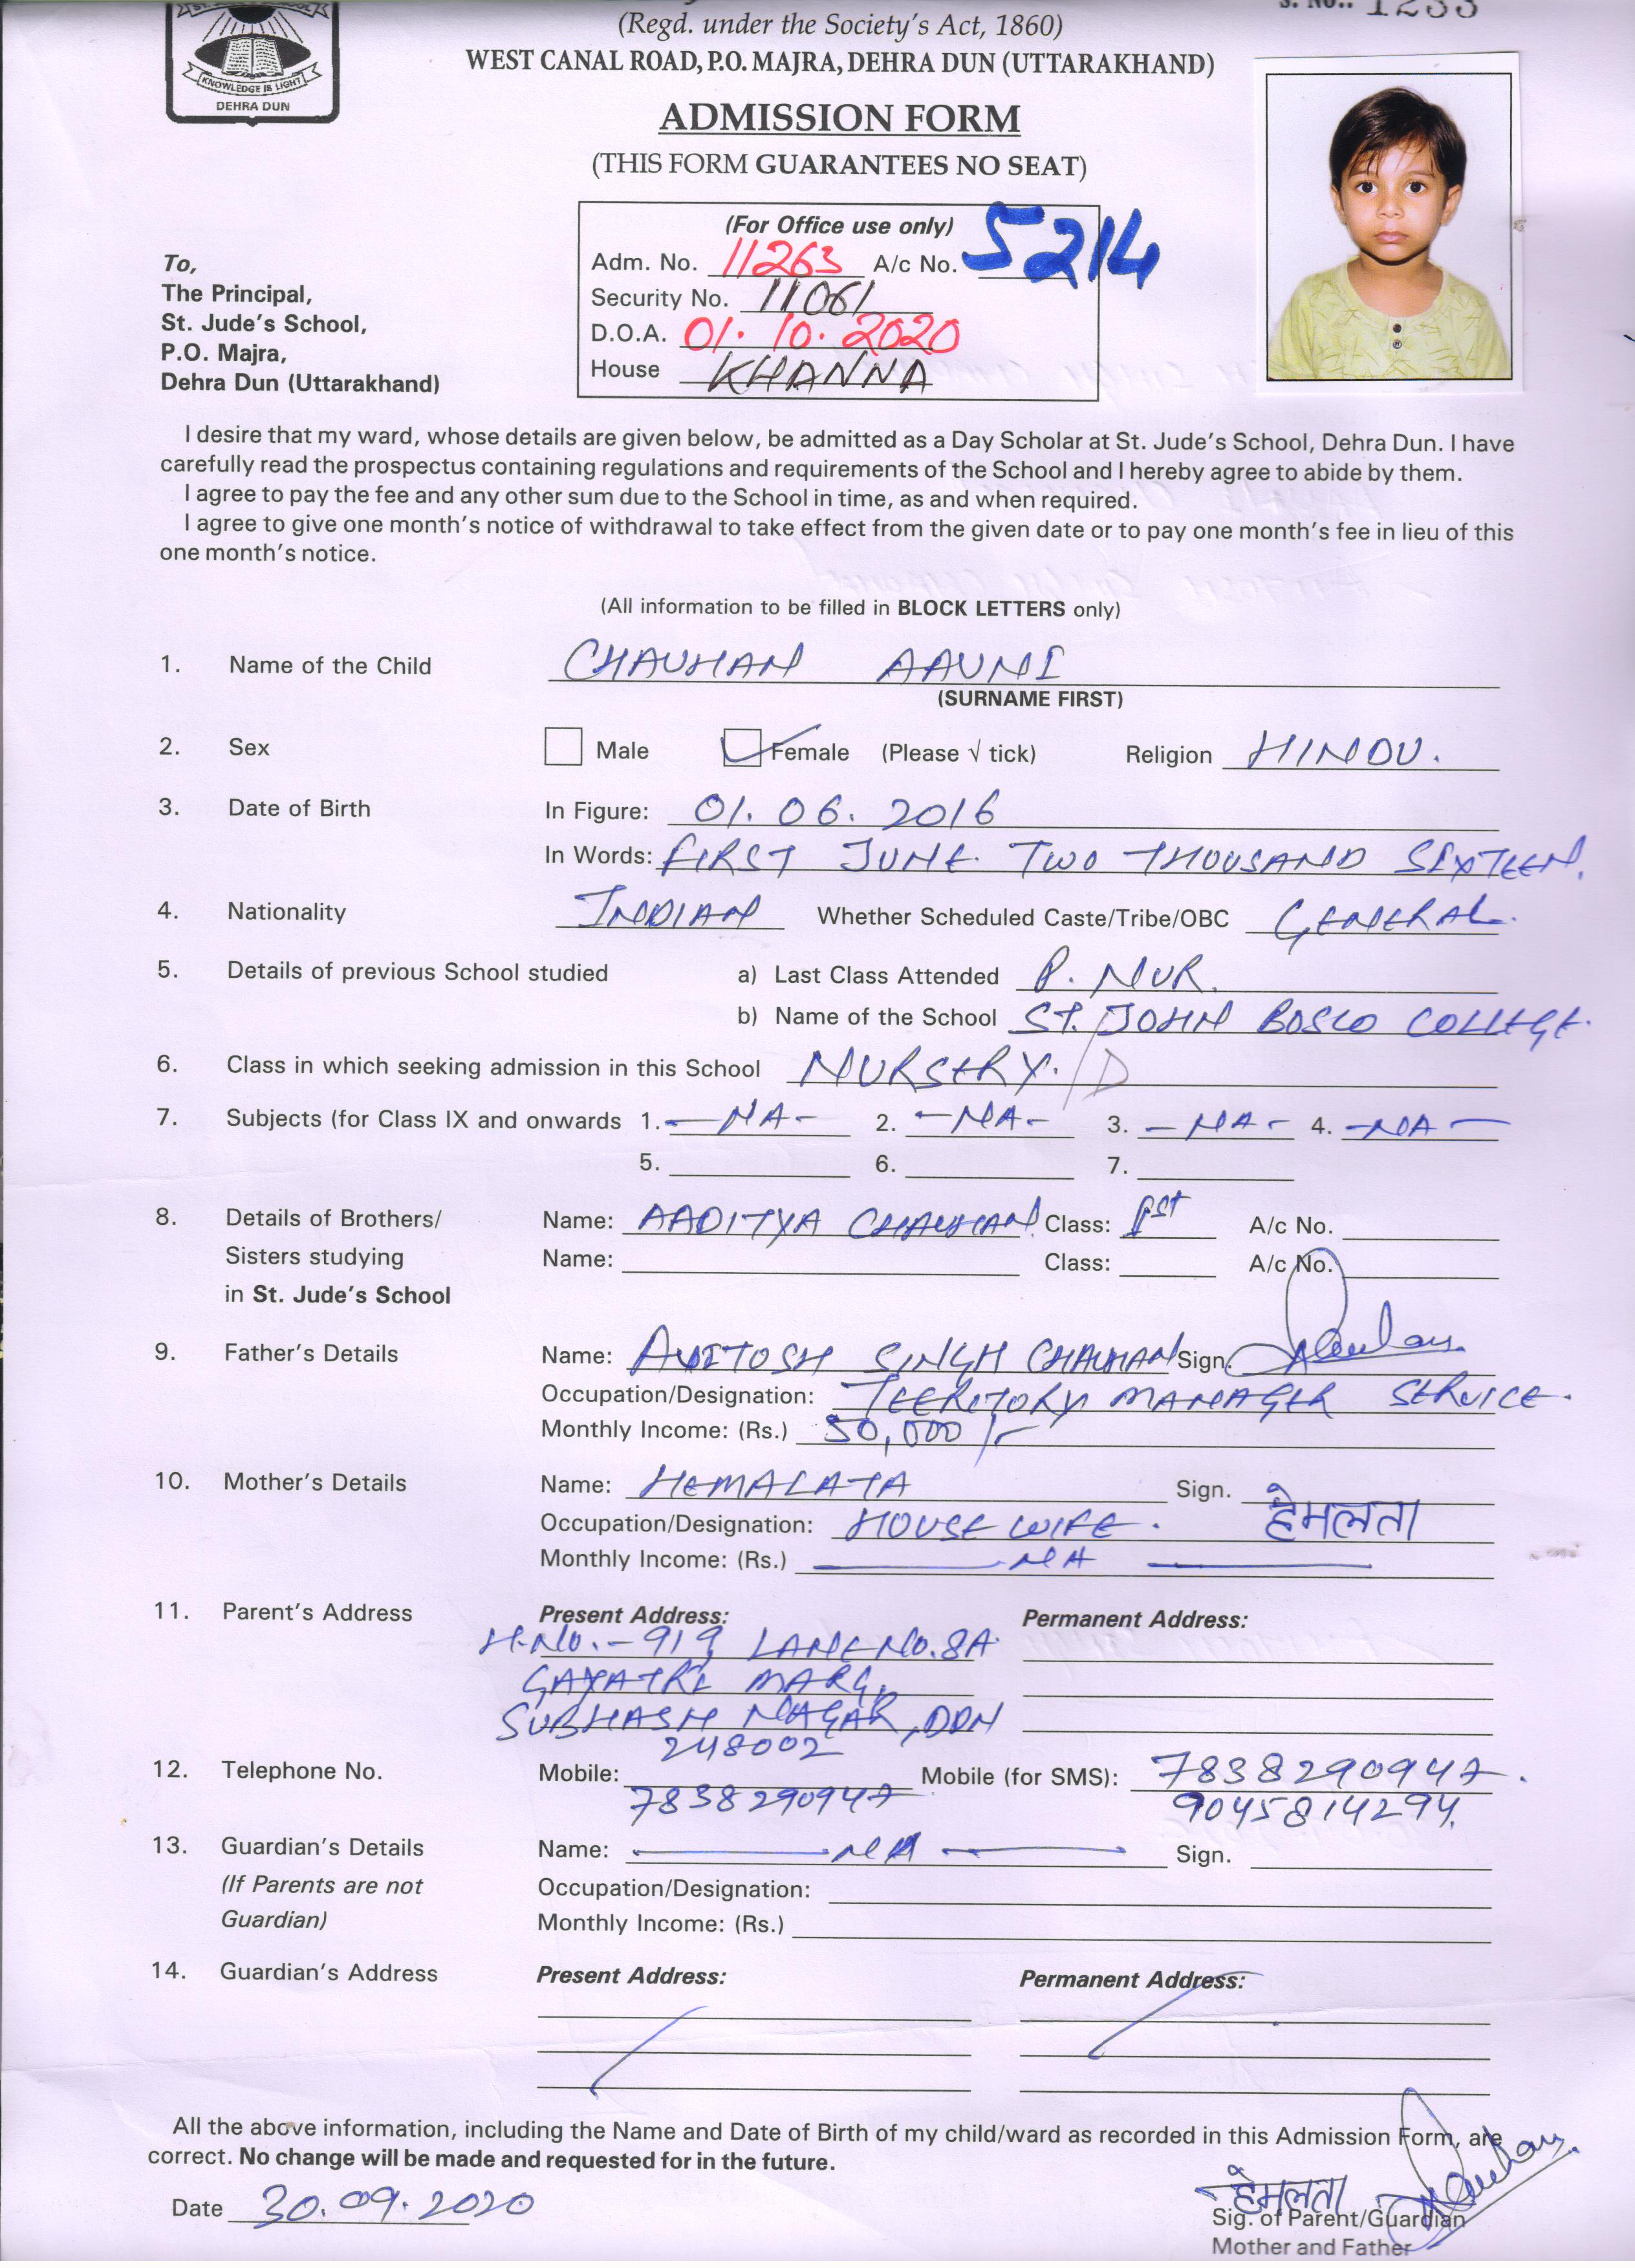 KNOWLEDGE IS LIGHT
DEHRA DUN
(Regd. under the Society's Act, 1860)
S. No.: 1233
WEST CANAL ROAD, P.O. MAJRA, DEHRA DUN (UTTARAKHAND)
ADMISSION FORM
(THIS FORM GUARANTEES NO SEAT)
(For Office use only)
Adm. No. 11263 A/c No. 5214
Security No. 11061
D.O.A. 01.10.2020
House KHANNA
To,
The Principal,
St. Jude's School,
P.O. Majra,
Dehra Dun (Uttarakhand)
I desire that my ward, whose details are given below, be admitted as a Day Scholar at St. Jude's School, Dehra Dun. I have
carefully read the prospectus containing regulations and requirements of the School and I hereby agree to abide by them.
I agree to pay the fee and any other sum due to the School in time, as and when required.
I agree to give one month's notice of withdrawal to take effect from the given date or to pay one month's fee in lieu of this
one month's notice.
(All information to be filled in BLOCK LETTERS only)
1. Name of the Child CHAUHAN AAVNI
(SURNAME FIRST)
2. Sex Male Female (Please √ tick) Religion HINDU.
3. Date of Birth In Figure: 01.06.2016
In Words: FIRST JUNE TWO THOUSAND SIXTEEN.
4. Nationality INDIAN Whether Scheduled Caste/Tribe/OBC GENERAL.
5. Details of previous School studied a) Last Class Attended P. NUR.
b) Name of the School ST. JOHN BOSCO COLLEGE.
6. Class in which seeking admission in this School NURSERY. /D
7. Subjects (for Class IX and onwards 1. -NA- 2. -NA- 3. -NA- 4. -NA-
5. 6. 7.
8. Details of Brothers/ Name: AADITYA CHAUHAN Class: Ist A/c No.
Sisters studying Name: Class: A/c No.
in St. Jude's School
9. Father's Details Name: AVITOSH SINGH CHAUHAN Sign.
Occupation/Designation: TEERITORY MANAGER SERVICE.
Monthly Income: (Rs.) 50,000/-
10. Mother's Details Name: HEMALATA Sign. हेमलता
Occupation/Designation: HOUSE WIFE.
Monthly Income: (Rs.) NA
11. Parent's Address Present Address: Permanent Address:
H.No.-919 LANE NO.8A
GAYATRI MARG,
SUBHASH NAGAR, DDN
248002
12. Telephone No. Mobile: 7838290947 Mobile (for SMS): 7838290947.
9045814294.
13. Guardian's Details Name: NA Sign.
(If Parents are not Occupation/Designation:
Guardian) Monthly Income: (Rs.)
14. Guardian's Address Present Address: Permanent Address:
All the above information, including the Name and Date of Birth of my child/ward as recorded in this Admission Form, are
correct. No change will be made and requested for in the future.
Date 30.09.2020 हेमलता
Sig. of Parent/Guardian
Mother and Father